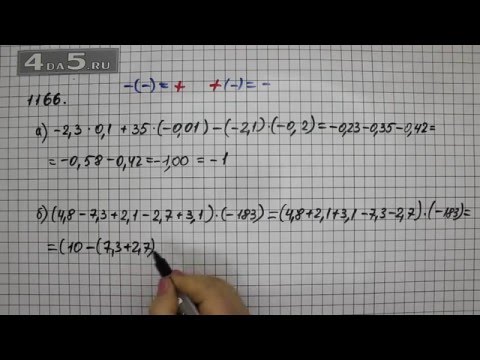 4DA5.RU
-(-) = + +(-) = -
1166.
а) -2,3 · 0,1 + 35 · (-0,01) - (-2,1) · (-0,2) = -0,23 - 0,35 - 0,42 =
= -0,58 - 0,42 = -1,00 = -1
б) (4,8 - 7,3 + 2,1 - 2,7 + 3,1) · (-183) = (4,8 + 2,1 + 3,1 - 7,3 - 2,7) · (-183) =
= (10 - (7,3 + 2,7)